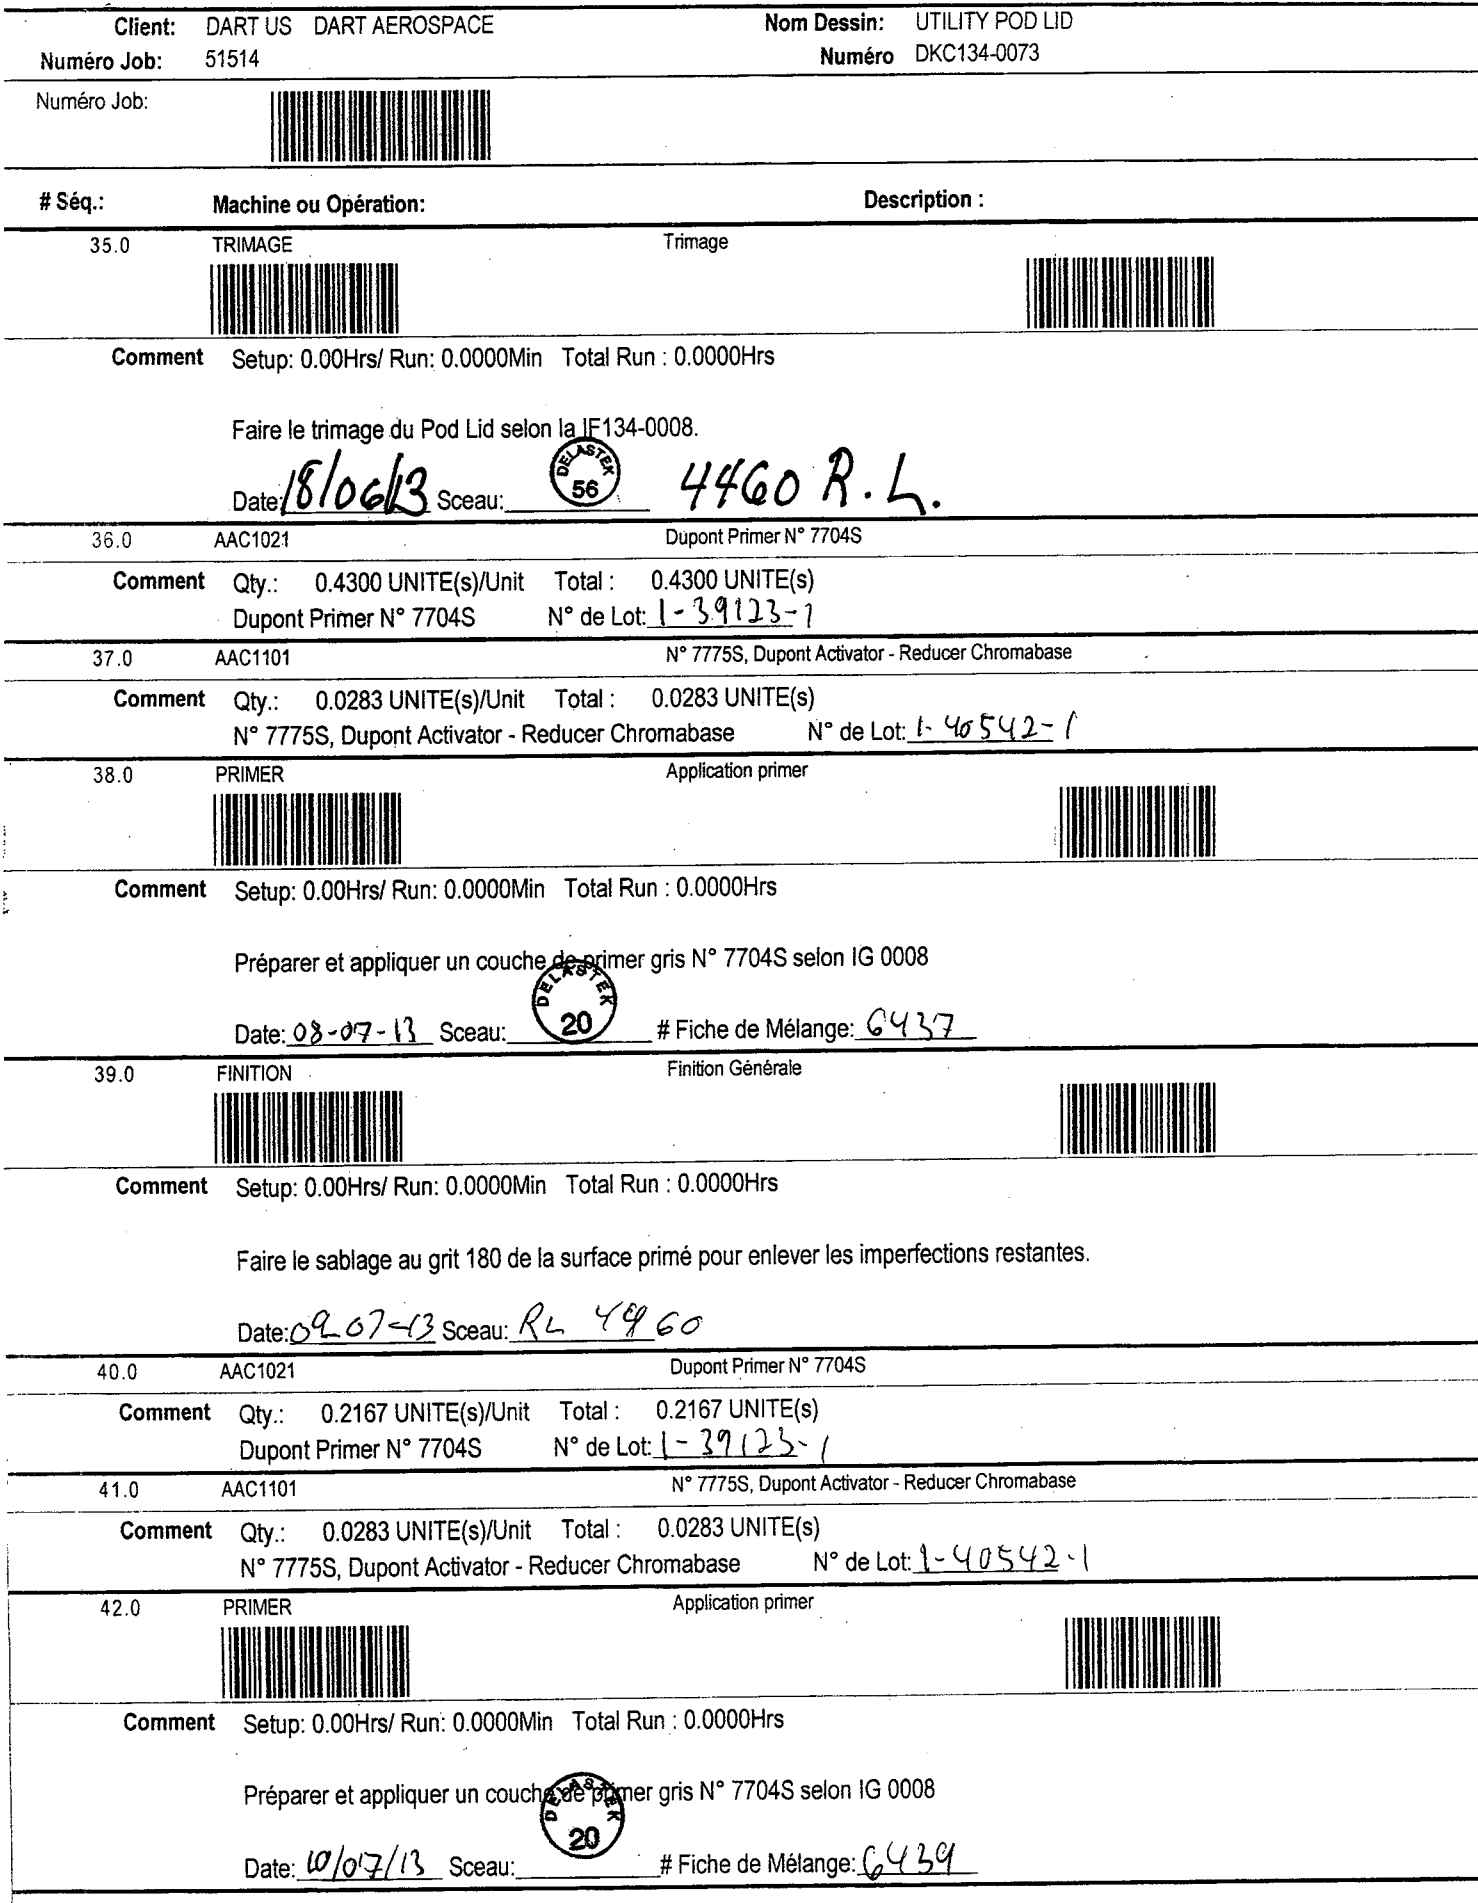 Client: DART US DART AEROSPACE Nom Dessin: UTILITY POD LID
Numéro Job: 51514 Numéro DKC134-0073
Numéro Job:
# Séq.: Machine ou Opération: Description :
35.0 TRIMAGE Trimage
Comment Setup: 0.00Hrs/ Run: 0.0000Min Total Run : 0.0000Hrs
Faire le trimage du Pod Lid selon la IF134-0008.
Date: 18/06/13 Sceau: DELASTEK 56 4460 R.L.
36.0 AAC1021 Dupont Primer N° 7704S
Comment Qty.: 0.4300 UNITE(s)/Unit Total : 0.4300 UNITE(s)
Dupont Primer N° 7704S N° de Lot: 1-39123-1
37.0 AAC1101 N° 7775S, Dupont Activator - Reducer Chromabase
Comment Qty.: 0.0283 UNITE(s)/Unit Total : 0.0283 UNITE(s)
N° 7775S, Dupont Activator - Reducer Chromabase N° de Lot: 1-40542-1
38.0 PRIMER Application primer
Comment Setup: 0.00Hrs/ Run: 0.0000Min Total Run : 0.0000Hrs
Préparer et appliquer un couche de primer gris N° 7704S selon IG 0008
Date: 08-07-13 Sceau: DELASTEK 20 # Fiche de Mélange: 6437
39.0 FINITION Finition Générale
Comment Setup: 0.00Hrs/ Run: 0.0000Min Total Run : 0.0000Hrs
Faire le sablage au grit 180 de la surface primé pour enlever les imperfections restantes.
Date: 09-07-13 Sceau: RL 4460
40.0 AAC1021 Dupont Primer N° 7704S
Comment Qty.: 0.2167 UNITE(s)/Unit Total : 0.2167 UNITE(s)
Dupont Primer N° 7704S N° de Lot: 1-39123-1
41.0 AAC1101 N° 7775S, Dupont Activator - Reducer Chromabase
Comment Qty.: 0.0283 UNITE(s)/Unit Total : 0.0283 UNITE(s)
N° 7775S, Dupont Activator - Reducer Chromabase N° de Lot: 1-40542-1
42.0 PRIMER Application primer
Comment Setup: 0.00Hrs/ Run: 0.0000Min Total Run : 0.0000Hrs
Préparer et appliquer un couche de primer gris N° 7704S selon IG 0008
Date: 10/07/13 Sceau: DELASTEK 20 # Fiche de Mélange: 6439